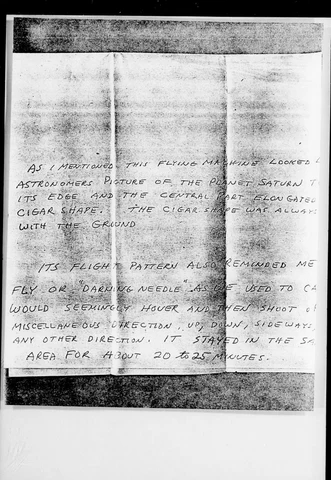 AS I MENTIONED THIS FLYING MACHINE LOOKED L
ASTRONOMERS PICTURE OF THE PLANET SATURN T
ITS EDGE AND THE CENTRAL PART ELONGATED
CIGAR SHAPE. THE CIGAR SHAPE WAS ALWAYS
WITH THE GROUND
ITS FLIGHT PATTERN ALSO REMINDED ME
FLY OR "DARNING NEEDLE" AS WE USED TO CA
WOULD SEEMINGLY HOVER AND THEN SHOOT O
MISCELLANEOUS DIRECTION, UP, DOWN, SIDEWAYS,
ANY OTHER DIRECTION. IT STAYED IN THE SA
AREA FOR ABOUT 20 to 25 MINUTES.